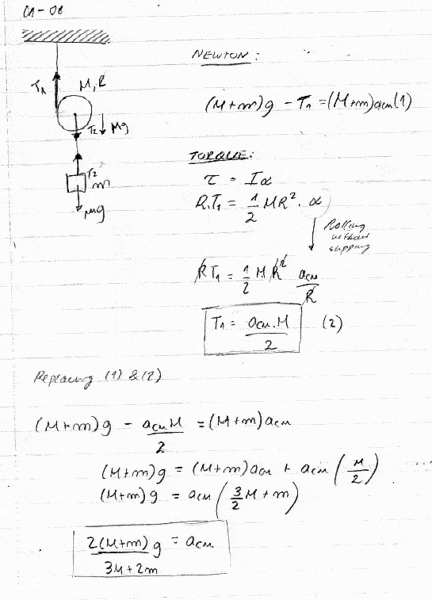 C1-08
NEWTON:
T₁ M,R
T₂ Mg
(M+m)g - T₁ = (M+m)acm (1)
T₂
m
mg
TORQUE:
τ = Iα
R.T₁ = 1/2 MR² . α
Rolling
without
slipping
RT₁ = 1/2 M R² acm/R
T₁ = acm.M/2 (2)
Replacing (1) & (2)
(M+m)g - acm M/2 = (M+m)acm
(M+m)g = (M+m)acm + acm (M/2)
(M+m)g = acm (3/2 M + m)
2(M+m)g/3M+2m = acm